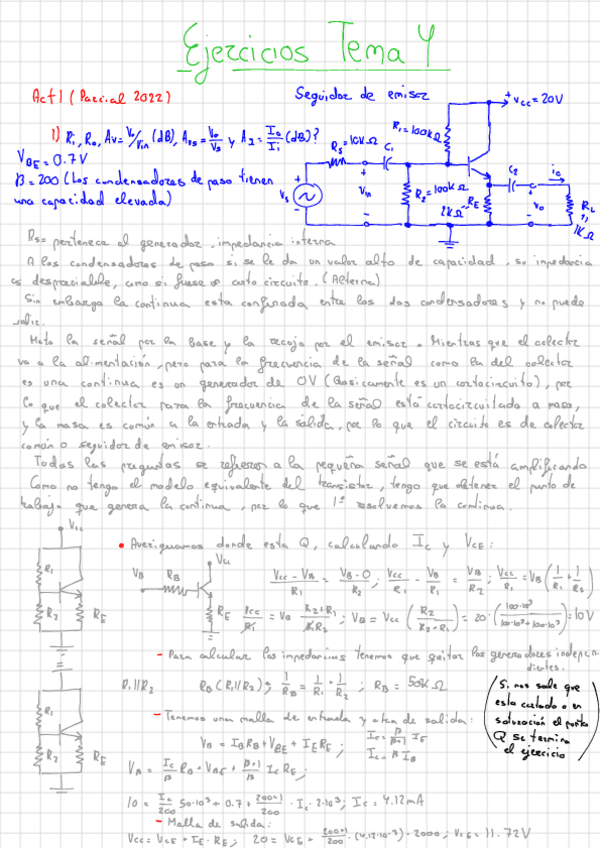 Ejercicios Tema 4
Act 1 (Parcial 2022)
Seguidor de emisor
1) Ri, Ro, Av = Vo/Vin (dB), Avs = Vo/Vs y AI = Io/Ii (dB)?
VBE = 0.7V
β = 200 (Los condensadores de paso tienen
una capacidad elevada)
Vcc = 20V
R1 = 100KΩ
Rs = 10KΩ
C1
C2
io
Vs
Vin
R2 = 100KΩ
RE
2KΩ
Vo
RL
1KΩ
Rs = pertenece al generador, impedancia interna
A los condensadores de paso si se le da un valor alto de capacidad, su impedancia
es despreciable, como si fuese un corto circuito. (Alterna)
Sin embargo la continua esta confinada entre los dos condensadores y no puede
salir.
Meto la señal por la base y la recojo por el emisor. Mientras que el colector
va a la alimentación, pero para la frecuencia de la señal como la del colector
es una continua es un generador de 0V (Basicamente es un cortocircuito), por
lo que el colector para la frecuencia de la señal está cortocircuitado a masa,
y la masa es común a la entrada y la salida, por lo que el circuito es de colector
común o seguidor de emisor.
Todas las preguntas se refieren a la pequeña señal que se está amplificando
Como no tengo el modelo equivalente del transistor, tengo que obtener el punto de
trabajo que genera la continua, por lo que 1º resolvemos la continua.
Vcc
R1
R2
RE
=
R1
R2
RE
• Averiguamos donde esta Q, calculando Ic y VCE:
VB
RB
Vcc
RE
Vcc - VB / R1 = VB - 0 / R2 ; Vcc / R1 - VB / R1 = VB / R2 ; Vcc / R1 = VB (1/R1 + 1/R2)
Vcc / R1 = VB R2+R1 / R1R2 ; VB = Vcc (R2 / R2+R1) = 20 · (100·10³ / 100·10³+100·10³) = 10V
- Para calcular las impedancias tenemos que quitar los generadores indepen-
dientes.
R1 // R2
RB (R1//R2); 1/RB = 1/R1 + 1/R2 ; RB = 50KΩ
(Si nos sale que
esta cortado o en
saturación el punto
Q se termina
el ejercicio)
- Tenemos una malla de entrada y otra de salida:
VB = IB RB + VBE + IE RE ;
Ic = β/β+1 IE
Ic = β IB
VB = Ic/β RB + VBE + β+1/β Ic RE ;
10 = Ic/200 50·10³ + 0.7 + 200+1/200 · Ic · 2·10³ ; Ic = 4.12mA
- Malla de salida:
Vcc = VCE + IE · RE ; 20 = VCE + 200+1/200 · (4.12·10⁻³) · 2000 ; VCE = 11.72V